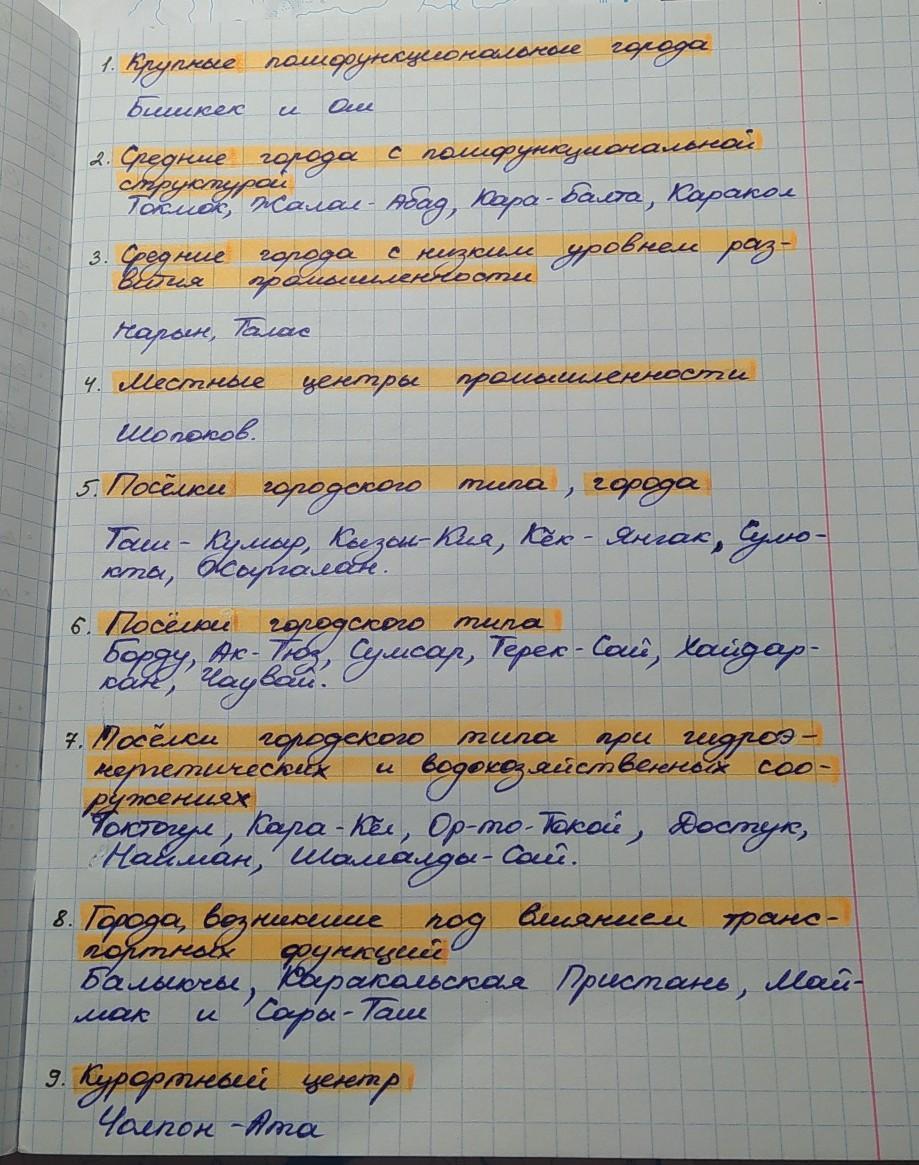 1. Крупные полифункциональные города
Бишкек и Ош
2. Средние города с полифункциональной
структурой
Токмок, Жалал-Абад, Кара-Балта, Каракол
3. Средние города с низким уровнем раз-
вития промышленности
Нарын, Талас
4. Местные центры промышленности
Шопоков.
5. Посёлки городского типа, города
Таш-Кумыр, Кызыл-Кия, Кёк-Янгак, Сулю-
кты, Жыргалан.
6. Посёлки городского типа
Борду, Ак-Тюз, Сумсар, Терек-Сай, Хайдар-
кан, Чаувай.
7. Посёлки городского типа при гидроэ-
нергетических и водохозяйственных соо-
ружениях
Токтогул, Кара-Кёл, Ор-то-Токой, Достук,
Найман, Шамалды-Сай.
8. Города, возникшие под влиянием транс-
портных функций
Балыкчы, Каракольская Пристань, Май-
мак и Сары-Таш
9. Курортный центр
Чолпон-Ата